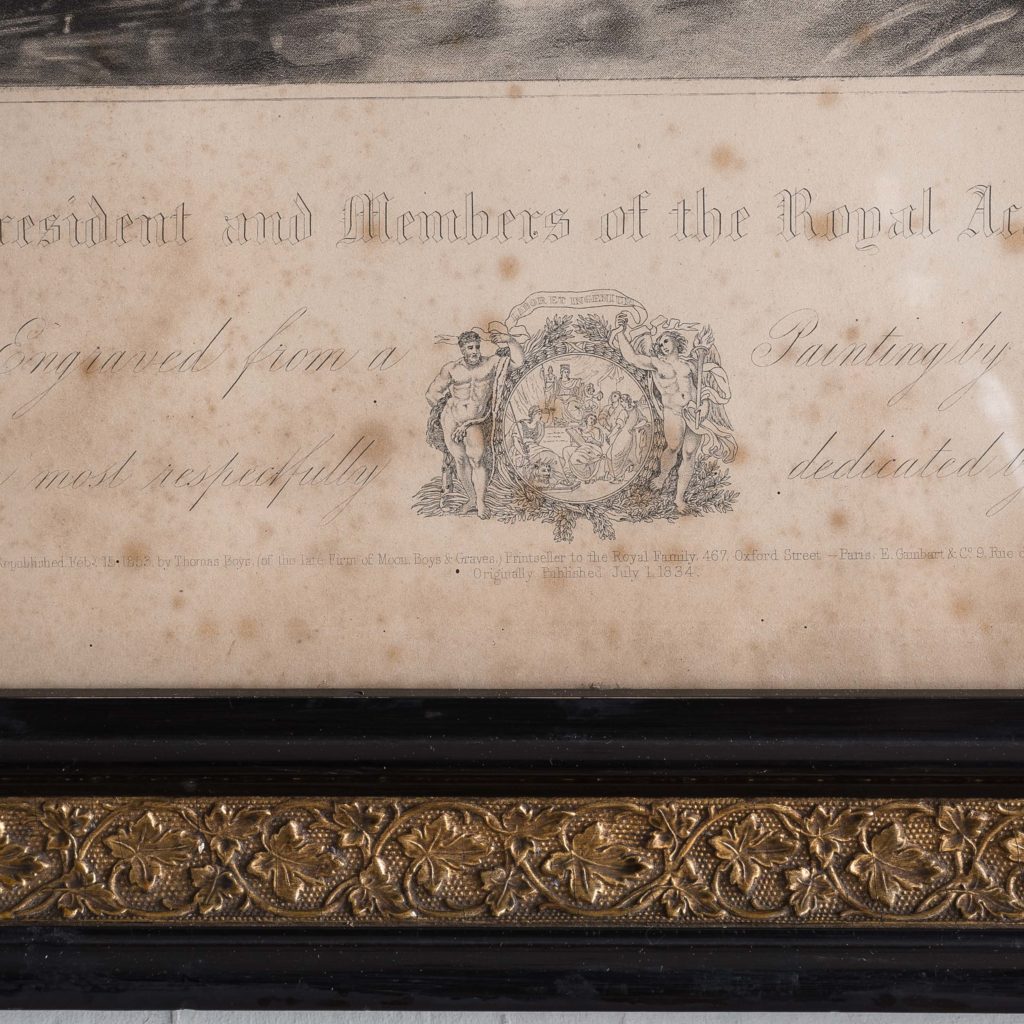 resident and Members of the Royal Ac
LABOR ET INGENIUM
Engraved from a Painting by
most respectfully dedicated
Republished Feb. 15. 1853. by Thomas Boys, (of the late Firm of Moon, Boys & Graves,) Printseller to the Royal Family, 467, Oxford Street — Paris, E. Gambart & Co. 9, Rue d
Originally Published July 1, 1834.